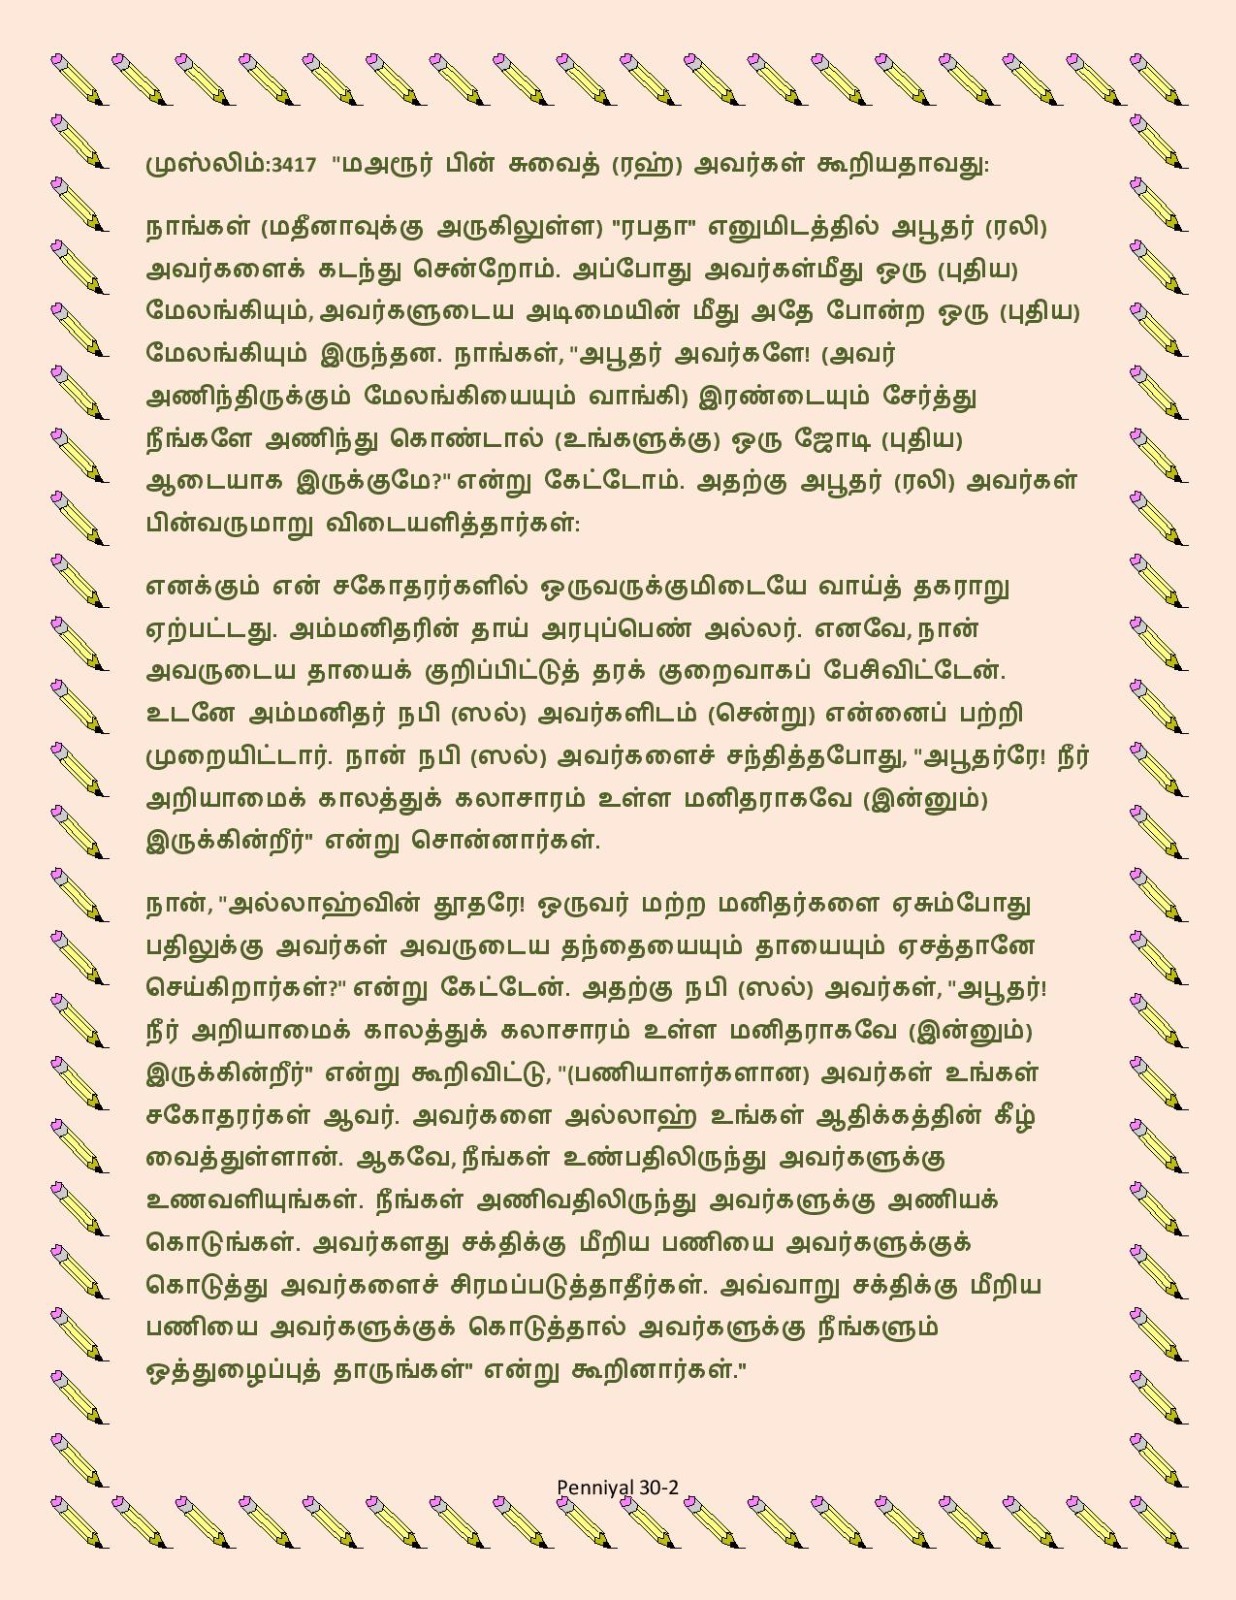 முஸ்லிம்:3417 "மஅரூர் பின் சுவைத் (ரஹ்) அவர்கள் கூறியதாவது:
நாங்கள் (மதீனாவுக்கு அருகிலுள்ள) "ரபதா" எனுமிடத்தில் அபூதர் (ரலி)
அவர்களைக் கடந்து சென்றோம். அப்போது அவர்கள்மீது ஒரு (புதிய)
மேலங்கியும், அவர்களுடைய அடிமையின் மீது அதே போன்ற ஒரு (புதிய)
மேலங்கியும் இருந்தன. நாங்கள், "அபூதர் அவர்களே! (அவர்
அணிந்திருக்கும் மேலங்கியையும் வாங்கி) இரண்டையும் சேர்த்து
நீங்களே அணிந்து கொண்டால் (உங்களுக்கு) ஒரு ஜோடி (புதிய)
ஆடையாக இருக்குமே?" என்று கேட்டோம். அதற்கு அபூதர் (ரலி) அவர்கள்
பின்வருமாறு விடையளித்தார்கள்:
எனக்கும் என் சகோதரர்களில் ஒருவருக்குமிடையே வாய்த் தகராறு
ஏற்பட்டது. அம்மனிதரின் தாய் அரபுப்பெண் அல்லர். எனவே, நான்
அவருடைய தாயைக் குறிப்பிட்டுத் தரக் குறைவாகப் பேசிவிட்டேன்.
உடனே அம்மனிதர் நபி (ஸல்) அவர்களிடம் (சென்று) என்னைப் பற்றி
முறையிட்டார். நான் நபி (ஸல்) அவர்களைச் சந்தித்தபோது, "அபூதர்ரே! நீர்
அறியாமைக் காலத்துக் கலாசாரம் உள்ள மனிதராகவே (இன்னும்)
இருக்கின்றீர்" என்று சொன்னார்கள்.
நான், "அல்லாஹ்வின் தூதரே! ஒருவர் மற்ற மனிதர்களை ஏசும்போது
பதிலுக்கு அவர்கள் அவருடைய தந்தையையும் தாயையும் ஏசத்தானே
செய்கிறார்கள்?" என்று கேட்டேன். அதற்கு நபி (ஸல்) அவர்கள், "அபூதர்!
நீர் அறியாமைக் காலத்துக் கலாசாரம் உள்ள மனிதராகவே (இன்னும்)
இருக்கின்றீர்" என்று கூறிவிட்டு, "(பணியாளர்களான) அவர்கள் உங்கள்
சகோதரர்கள் ஆவர். அவர்களை அல்லாஹ் உங்கள் ஆதிக்கத்தின் கீழ்
வைத்துள்ளான். ஆகவே, நீங்கள் உண்பதிலிருந்து அவர்களுக்கு
உணவளியுங்கள். நீங்கள் அணிவதிலிருந்து அவர்களுக்கு அணியக்
கொடுங்கள். அவர்களது சக்திக்கு மீறிய பணியை அவர்களுக்குக்
கொடுத்து அவர்களைச் சிரமப்படுத்தாதீர்கள். அவ்வாறு சக்திக்கு மீறிய
பணியை அவர்களுக்குக் கொடுத்தால் அவர்களுக்கு நீங்களும்
ஒத்துழைப்புத் தாருங்கள்" என்று கூறினார்கள்."
Penniyal 30-2